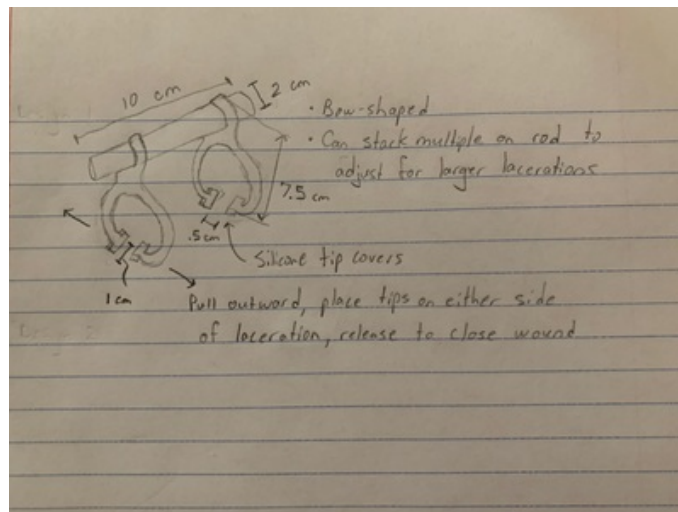 10 cm
2 cm
• Bow-shaped
• Can stack multiple on rod to
adjust for larger lacerations
7.5 cm
.5cm
Silicone tip covers
1cm
Pull outward, place tips on either side
of laceration, release to close wound